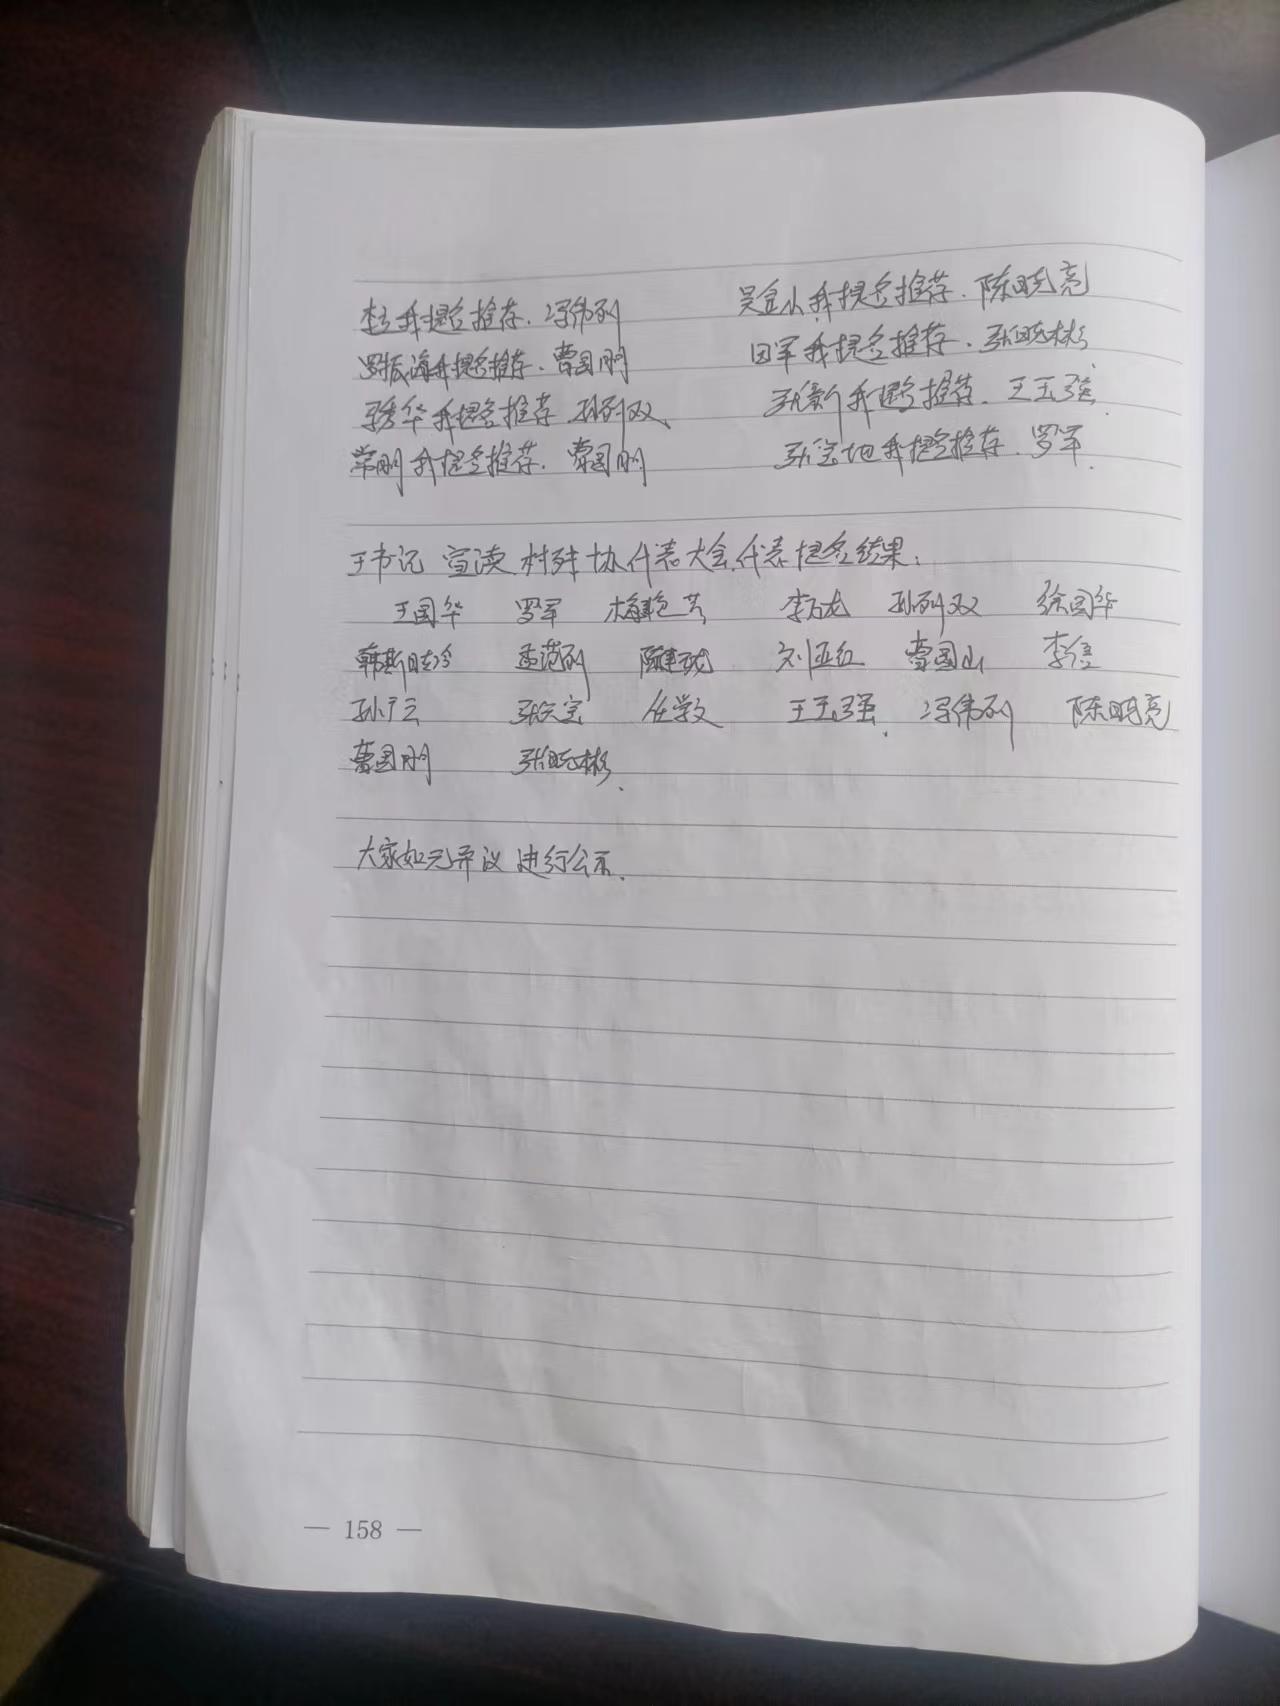 我提名推荐、冯伟列 吴金山我提名推荐、陈晓亮
罗振海我提名推荐、曹国刚 田军我提名推荐、张晓彬
秀华我提名推荐 孙列双 张新我提名推荐、王玉强
常刚我提名推荐、曹国刚 张宝地我提名推荐、罗军
王书记 宣读 村 协代表大会代表提名结果：
王国华 罗军 梅艳芳 李万龙 孙列双 徐国华
韩斯 孟范列 陈建龙 刘亚红 曹国山 李信
孙广云 张宝 任学文 王玉强 冯伟列 陈晓亮
曹国刚 张晓彬
大家如无异议 进行公示.
— 158 —